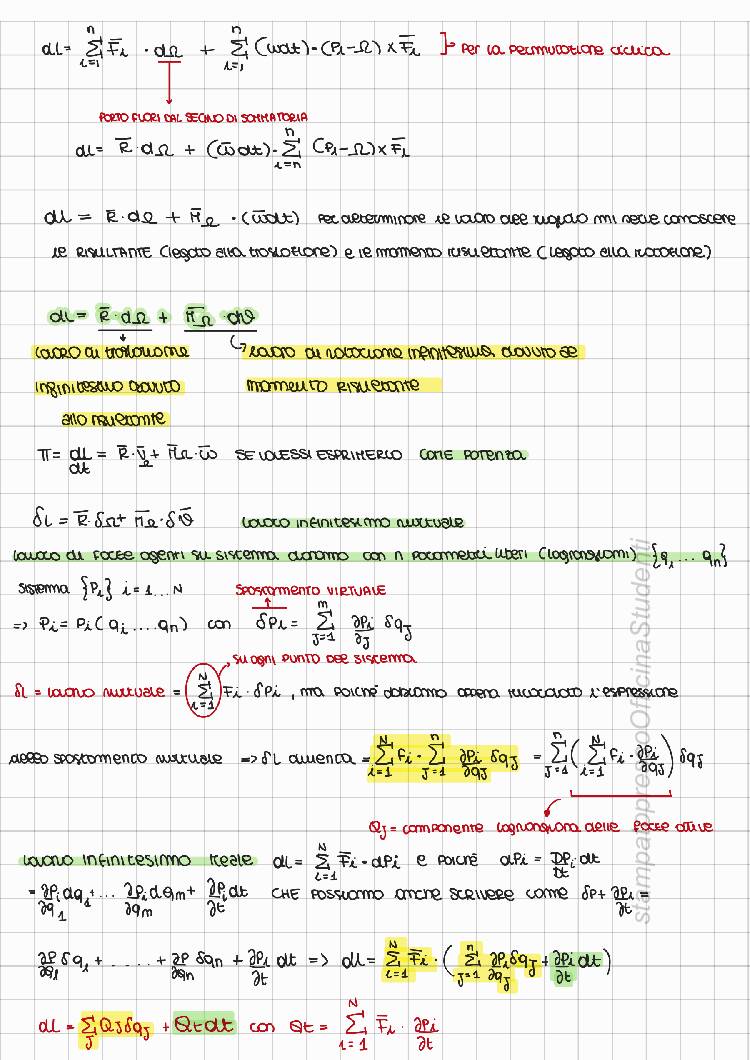 dL = Σ_{i=1}^{n} F̄i · dΩ + Σ_{i=1}^{n} (ωdt) · (Pi-Ω) × F̄i ]→ PER LA PERMUTAZIONE CICLICA
PORTO FUORI DAL SEGNO DI SOMMATORIA
dL = R̄ · dΩ + (ω̄dt) · Σ_{i=n}^{n} (Pi-Ω) × F̄i
dL = R̄ · dΩ + M̄Ω · (ω̄dt) PER DETERMINARE IL LAVORO DEL RIGIDO MI SERVE CONOSCERE
IL RISULTANTE (LEGATO ALLA TRASLAZIONE) E IL MOMENTO RISULTANTE (LEGATO ALLA ROTAZIONE)
dL = R̄ · dΩ + M̄Ω · dϑ
LAVORO DI TRASLAZIONE
LAVORO DI ROTAZIONE INFINITESIMA DOVUTO AL
INFINITESIMO DOVUTO
MOMENTO RISULTANTE
ALLO RISULTANTE
π = dL/dt = R̄ · v̄Ω + M̄Ω · ω̄ SE VOLESSI ESPRIMERLO COME POTENZA
δL = R̄ · δΩ + M̄Ω · δϑ̄ LAVORO INFINITESIMO VIRTUALE
LAVORO DI FORZE AGENTI SU SISTEMA OLONOMO CON n PARAMETRI LIBERI (LAGRANGIANI) {q1 ... qn}
SISTEMA {Pi} i=1...N SPOSTAMENTO VIRTUALE
=> Pi = Pi(qi....qn) CON δPi = Σ_{J=1}^{m} ∂Pi/∂J δqJ
SU OGNI PUNTO DEL SISTEMA
δL = LAVORO VIRTUALE = Σ_{i=1}^{N} Fi · δPi, MA POICHÉ ABBIAMO APPENA RICAVATO L'ESPRESSIONE
DELLO SPOSTAMENTO VIRTUALE => δL DIVENTA = Σ_{i=1}^{N} Fi · Σ_{J=1}^{n} ∂Pi/∂qJ δqJ = Σ_{J=1}^{n} (Σ_{i=1}^{N} Fi · ∂Pi/∂qJ) δqJ
QJ = COMPONENTE LAGRANGIANA DELLE FORZE ATTIVE
LAVORO INFINITESIMO REALE dL = Σ_{i=1}^{N} F̄i · dPi E POICHÉ dPi = DPi/Dt dt
= ∂Pi/∂q1 dq1 + ... ∂Pi/∂qm dqm + ∂Pi/∂t dt CHE POSSIAMO ANCHE SCRIVERE COME δP + ∂Pi/∂t =
∂P/∂q1 δq1 + ..... + ∂P/∂qn δqn + ∂Pi/∂t dt => dL = Σ_{i=1}^{N} F̄i · (Σ_{J=1}^{n} ∂Pi/∂qJ δqJ + ∂Pi/∂t dt)
dL = Σ_J QJ δqJ + Qt dt CON Qt = Σ_{i=1}^{N} F̄i · ∂Pi/∂t
stampatopressoOfficinaStudenti